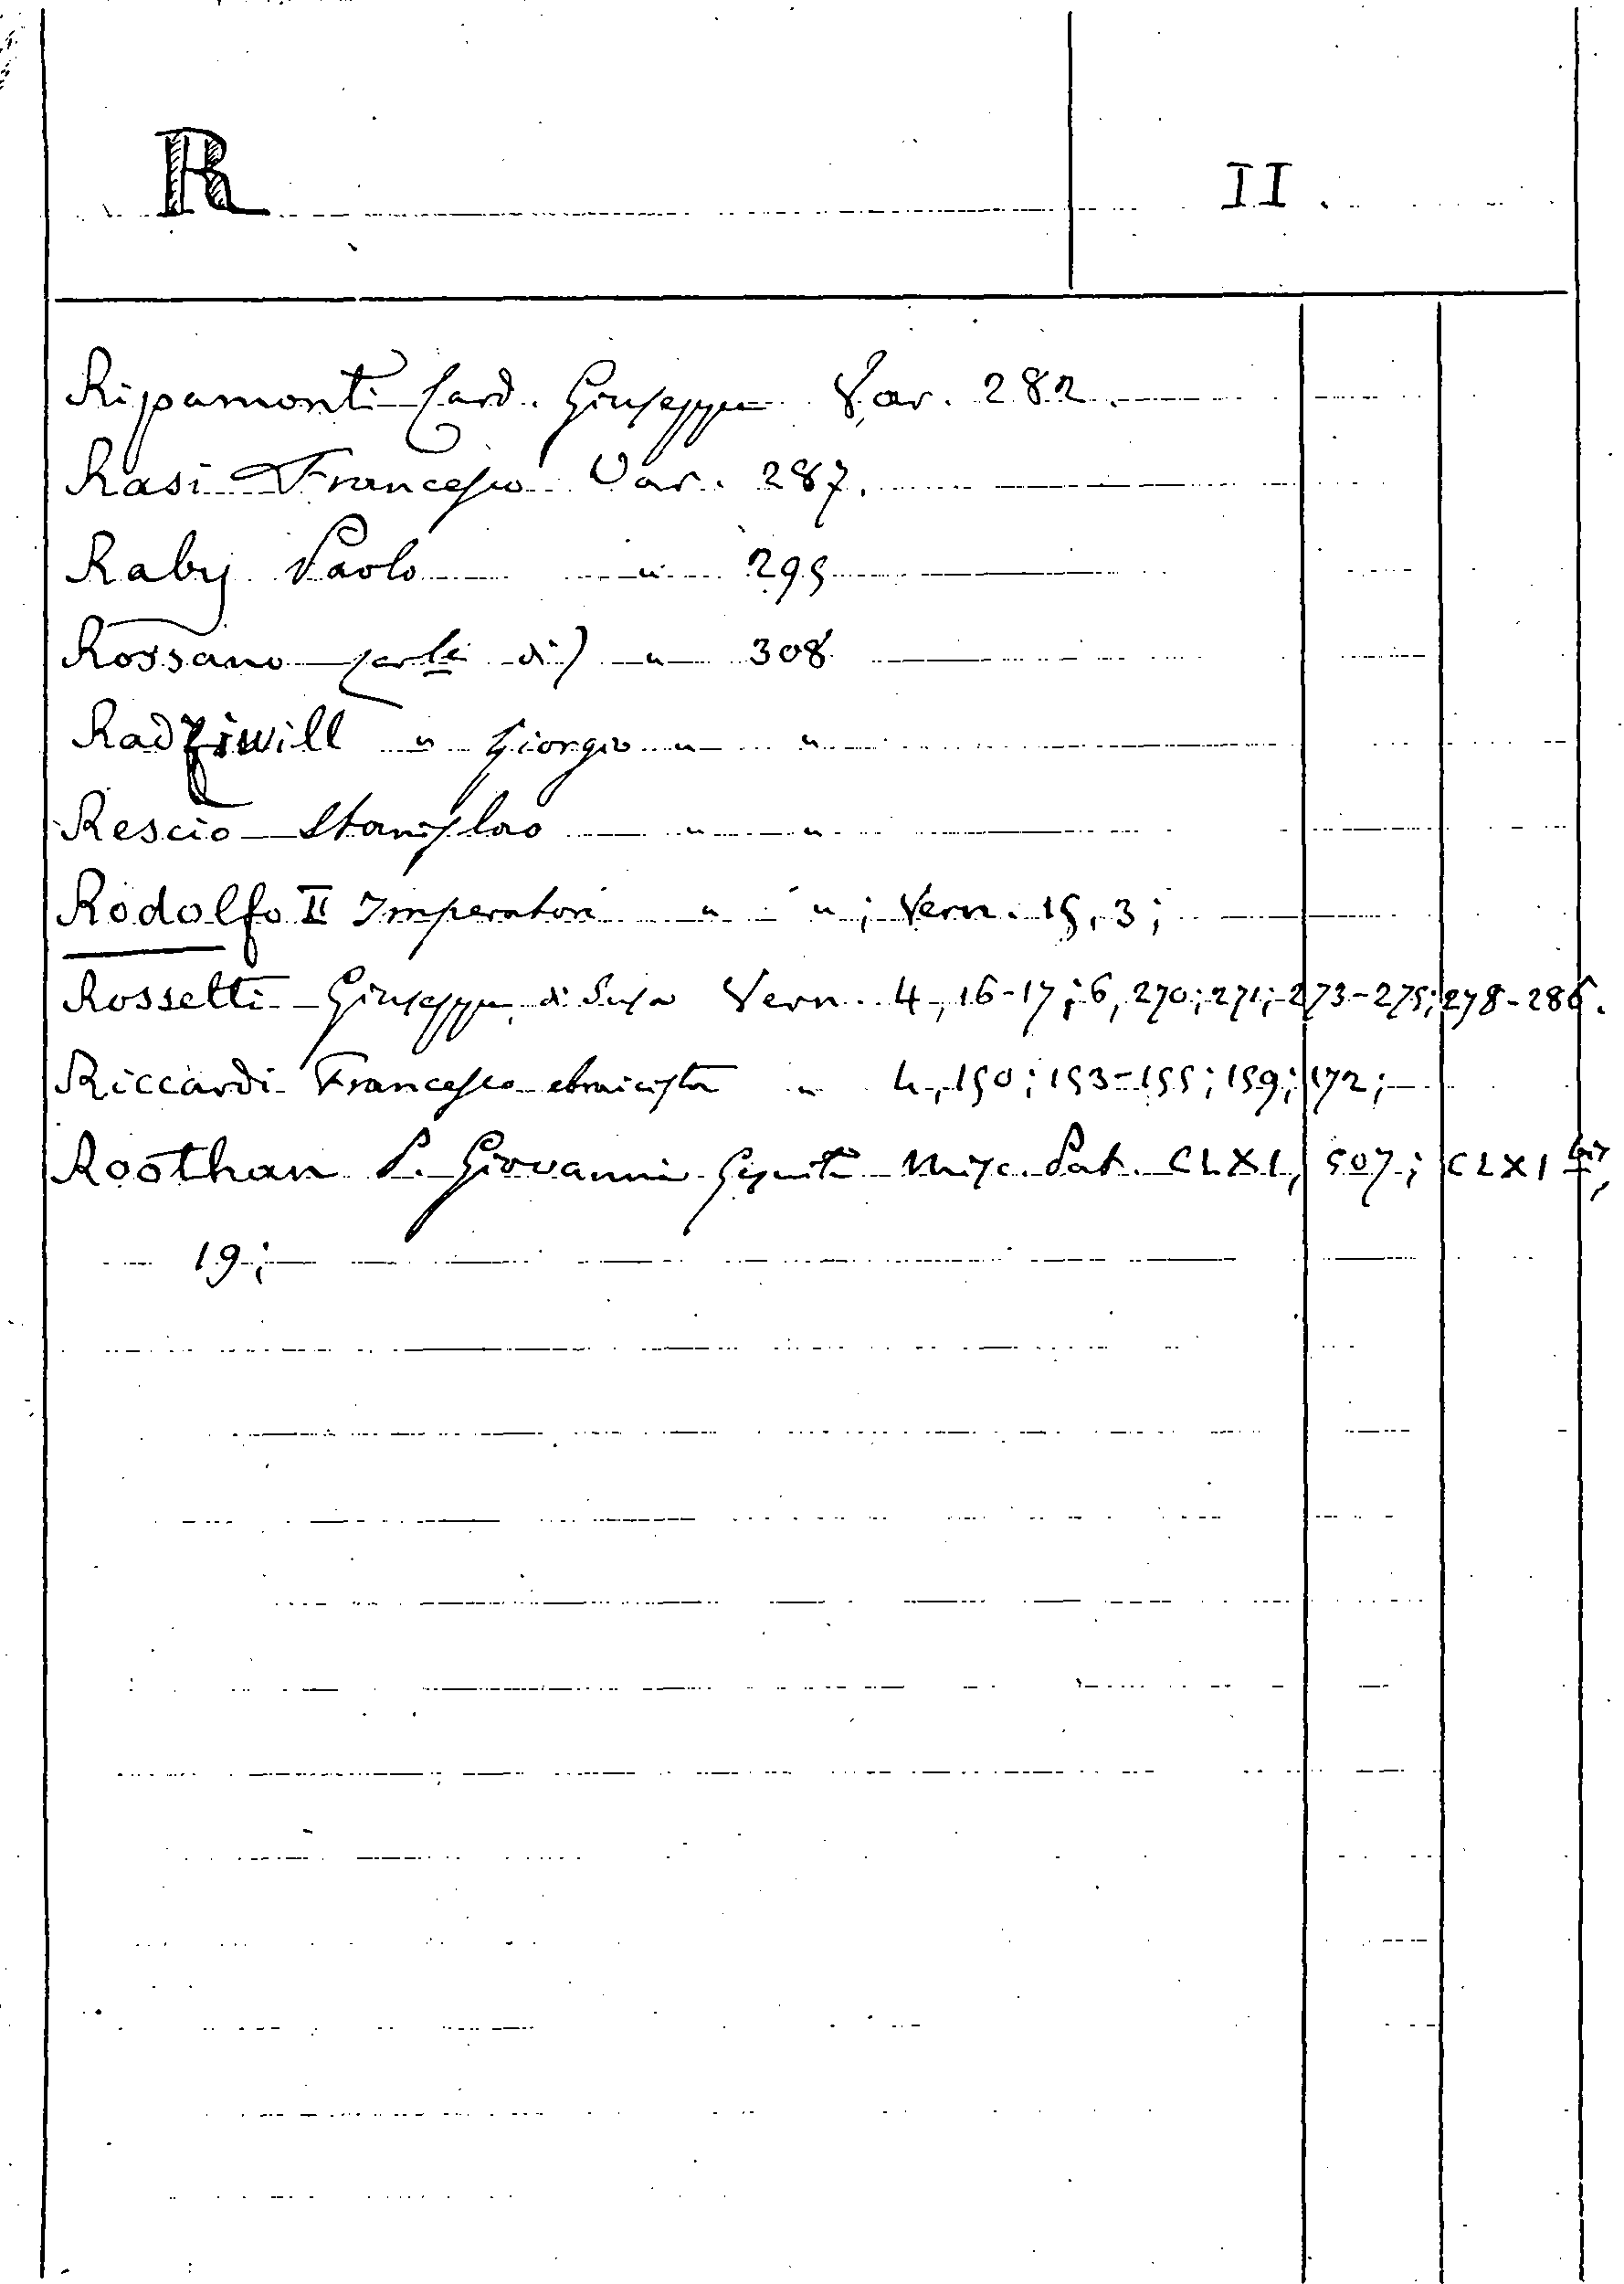 R II.
Ripamonti Card. Giuseppe Var. 282.
Rasi Francesco Var. 287.
Raby Paolo " 295
Rossano (carle di) " 308
Radziwill " Giorgio " "
Rescio Stanislao " "
Rodolfo II Imperatore " " ; Vern. 15, 3;
Rossetti Giuseppe di Susa Vern. 4, 16-17; 6, 270; 271; 273-275; 278-286.
Riccardi Francesco ebraicista " 4, 150; 153-155; 159; 172;
Roothan P. Giovanni Gesuita Misc. Pat. CLXI, 507; CLXI bis,
19;